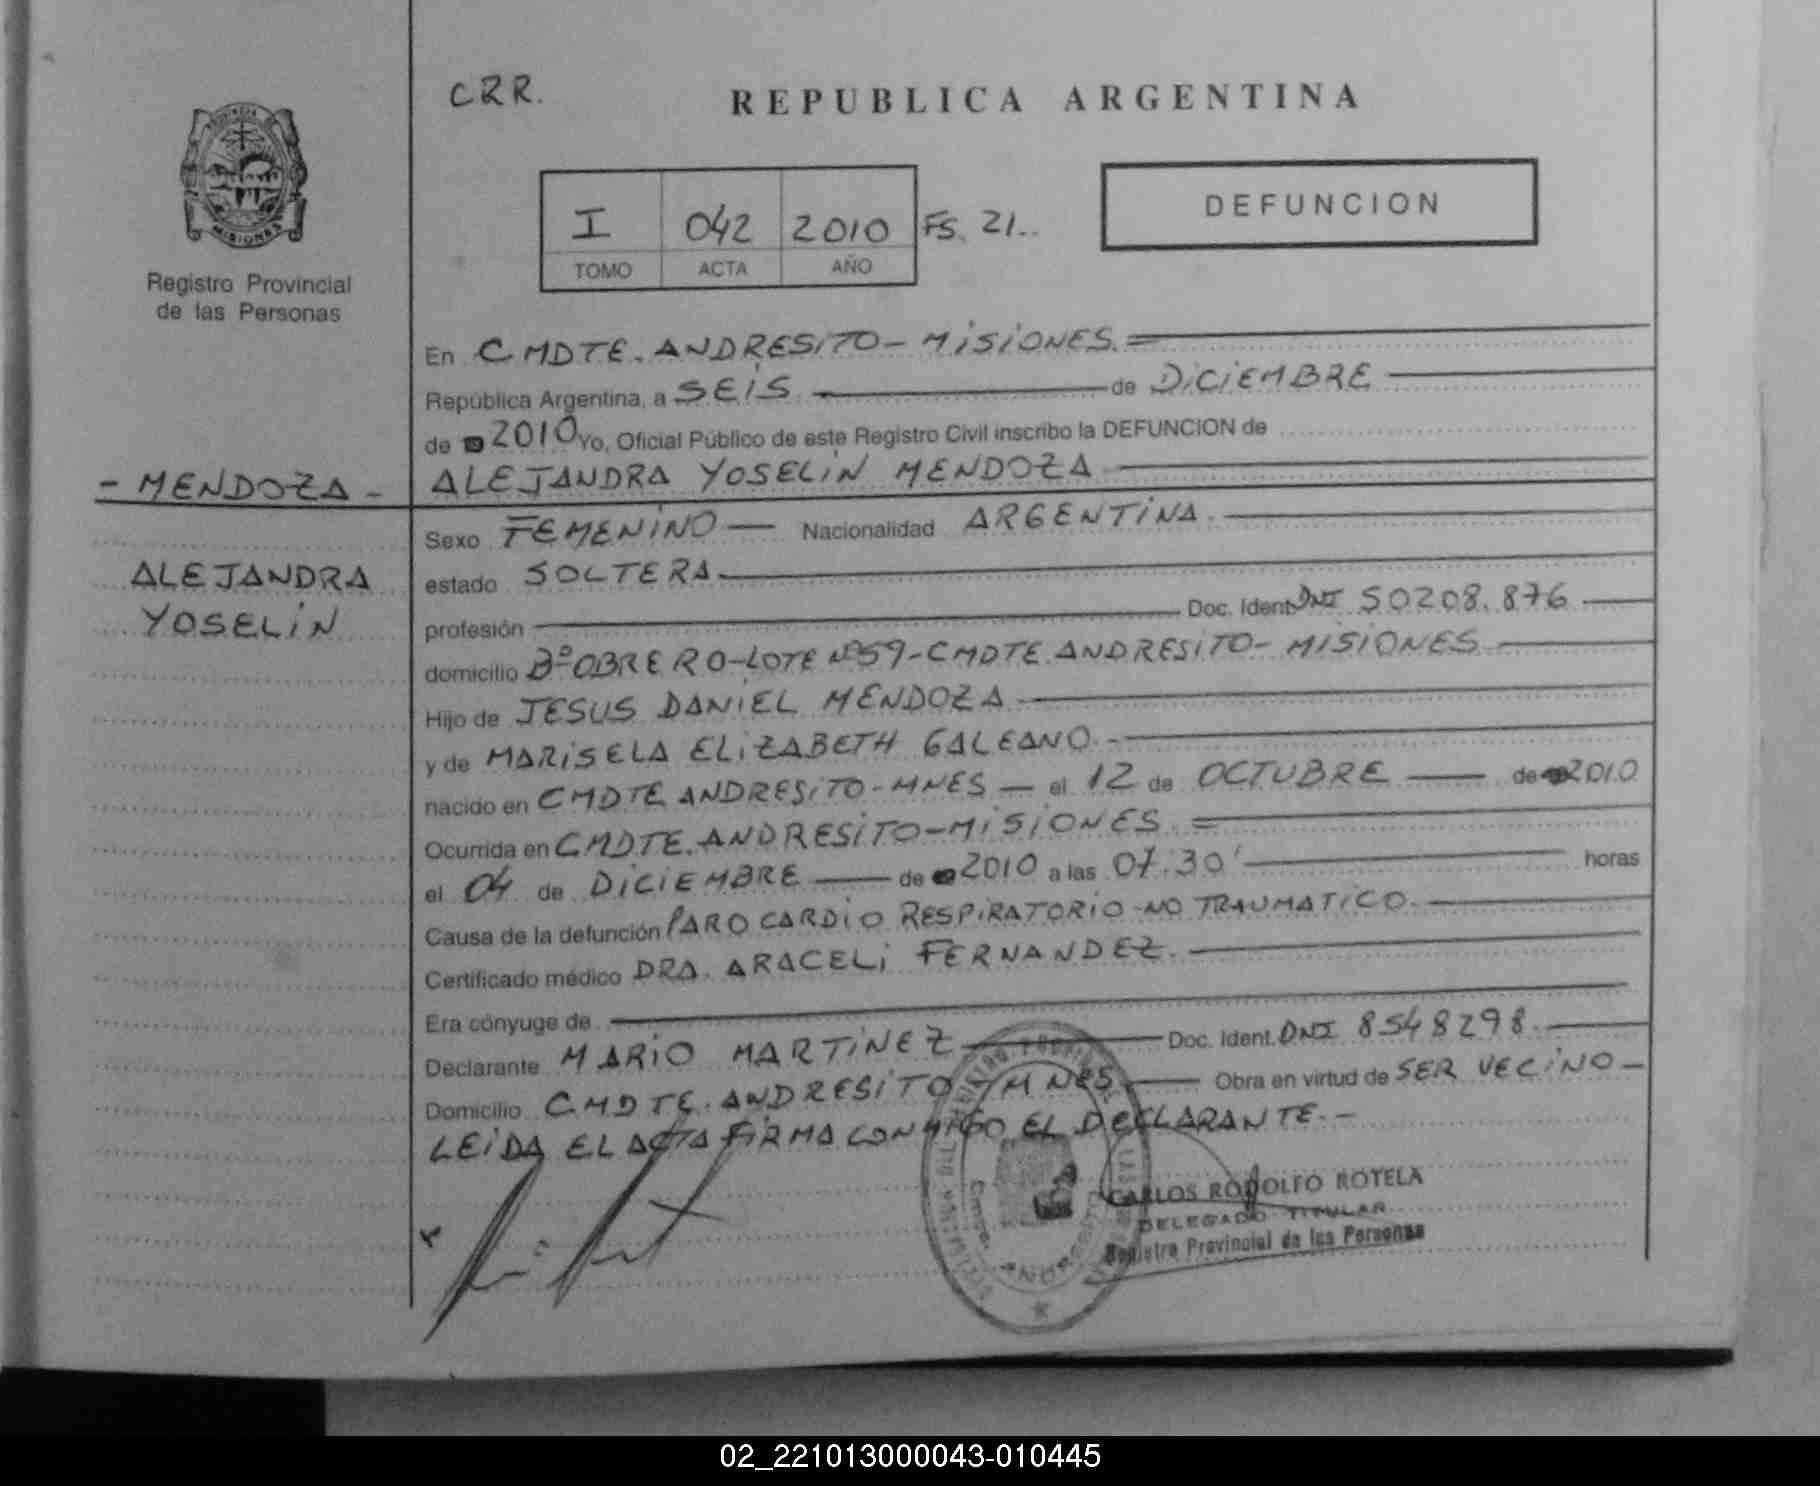 CRR.
REPUBLICA ARGENTINA
MISIONES
Registro Provincial
de las Personas
I 042 2010 FS. 21..
TOMO ACTA AÑO
DEFUNCION
En CMDTE. ANDRESITO - MISIONES.
República Argentina, a SEIS de DICIEMBRE
de 2010 Yo, Oficial Público de este Registro Civil inscribo la DEFUNCION de
- MENDOZA -
ALEJANDRA YOSELIN MENDOZA
ALEJANDRA
YOSELIN
Sexo FEMENINO Nacionalidad ARGENTINA.
estado SOLTERA.
profesión Doc. Ident. DNI 50208.876
domicilio Bº OBRERO-LOTE Nº59-CMDTE ANDRESITO- MISIONES
Hijo de JESUS DANIEL MENDOZA
y de MARISELA ELIZABETH GALEANO.-
nacido en CMDTE ANDRESITO-MNES el 12 de OCTUBRE de 2010
Ocurrida en CMDTE. ANDRESITO-MISIONES.
el 04 de DICIEMBRE de 2010 a las 07.30' horas
Causa de la defunción PARO CARDIO RESPIRATORIO-NO TRAUMATICO.
Certificado médico DRA. ARACELI FERNANDEZ.
Era cónyuge de
Declarante MARIO MARTINEZ Doc. Ident. DNI 8548298.
Domicilio CMDTE. ANDRESITO-MNES Obra en virtud de SER VECINO-
LEIDA EL ACTA FIRMA CONMIGO EL DECLARANTE.-
CARLOS RODOLFO ROTELA
DELEGADO TITULAR
Registro Provincial de las Personas
02_221013000043-010445